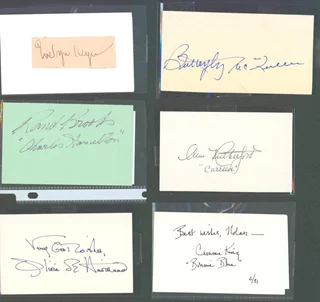 Evelyn Keyes
Butterfly McQueen
Rand Brooks
"Charles Hamilton"
Ann Rutherford
"Carreen"
Very Best Wishes,
Olivia de Havilland
Best wishes, Nolan —
Cammie King
"Bonnie Blue"